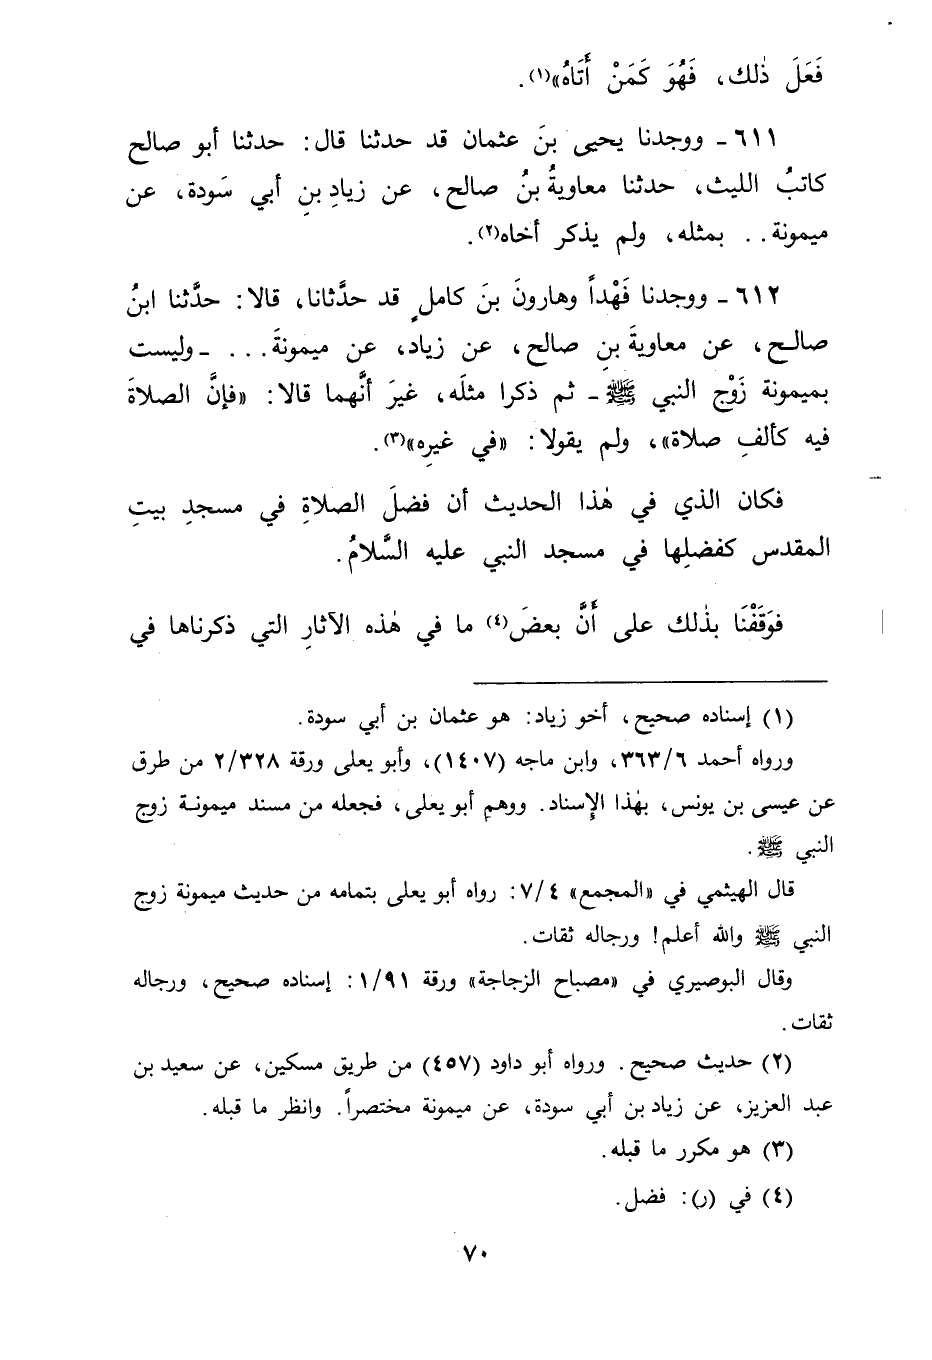 فَعَلَ ذٰلك، فَهُوَ كَمَنْ أَتَاهُ»(١).
٦١١ ـ ووجدنا يحيى بنَ عثمان قد حدثنا قال: حدثنا أبو صالح
كاتبُ الليث، حدثنا معاويةُ بنُ صالح، عن زيادِ بنِ أبي سَودة، عن
ميمونة.. بمثله، ولم يذكر أخاه(٢).
٦١٢ ـ ووجدنا فَهْداً وهارونَ بنَ كاملٍ قد حدَّثانا، قالا: حدَّثنا ابنُ
صالح، عن معاويةَ بنِ صالح، عن زياد، عن ميمونةَ... ـ وليست
بميمونة زَوْجِ النبي ﷺ ـ ثم ذكرا مثلَه، غيرَ أنَّهما قالا: «فإنَّ الصلاةَ
فيه كألفِ صلاة»، ولم يقولا: «في غيرِه»(٣).
فكان الذي في هٰذا الحديث أن فضلَ الصلاةِ في مسجدِ بيتِ
المقدس كفضلِها في مسجد النبي عليه السَّلامُ.
فوَقَفْنَا بذٰلك على أَنَّ بعضَ(٤) ما في هٰذه الآثارِ التي ذكرناها في
(١) إسناده صحيح، أخو زياد: هو عثمان بن أبي سودة.
ورواه أحمد ٣٦٣/٦، وابن ماجه (١٤٠٧)، وأبو يعلى ورقة ٢/٣٢٨ من طرق
عن عيسى بن يونس، بهٰذا الإسناد. ووهم أبو يعلى، فجعله من مسند ميمونة زوج
النبي ﷺ.
قال الهيثمي في «المجمع» ٧/٤: رواه أبو يعلى بتمامه من حديث ميمونة زوج
النبي ﷺ والله أعلم! ورجاله ثقات.
وقال البوصيري في «مصباح الزجاجة» ورقة ١/٩١: إسناده صحيح، ورجاله
ثقات.
(٢) حديث صحيح. ورواه أبو داود (٤٥٧) من طريق مسكين، عن سعيد بن
عبد العزيز، عن زياد بن أبي سودة، عن ميمونة مختصراً. وانظر ما قبله.
(٣) هو مكرر ما قبله.
(٤) في (ر): فضل.
٧٠